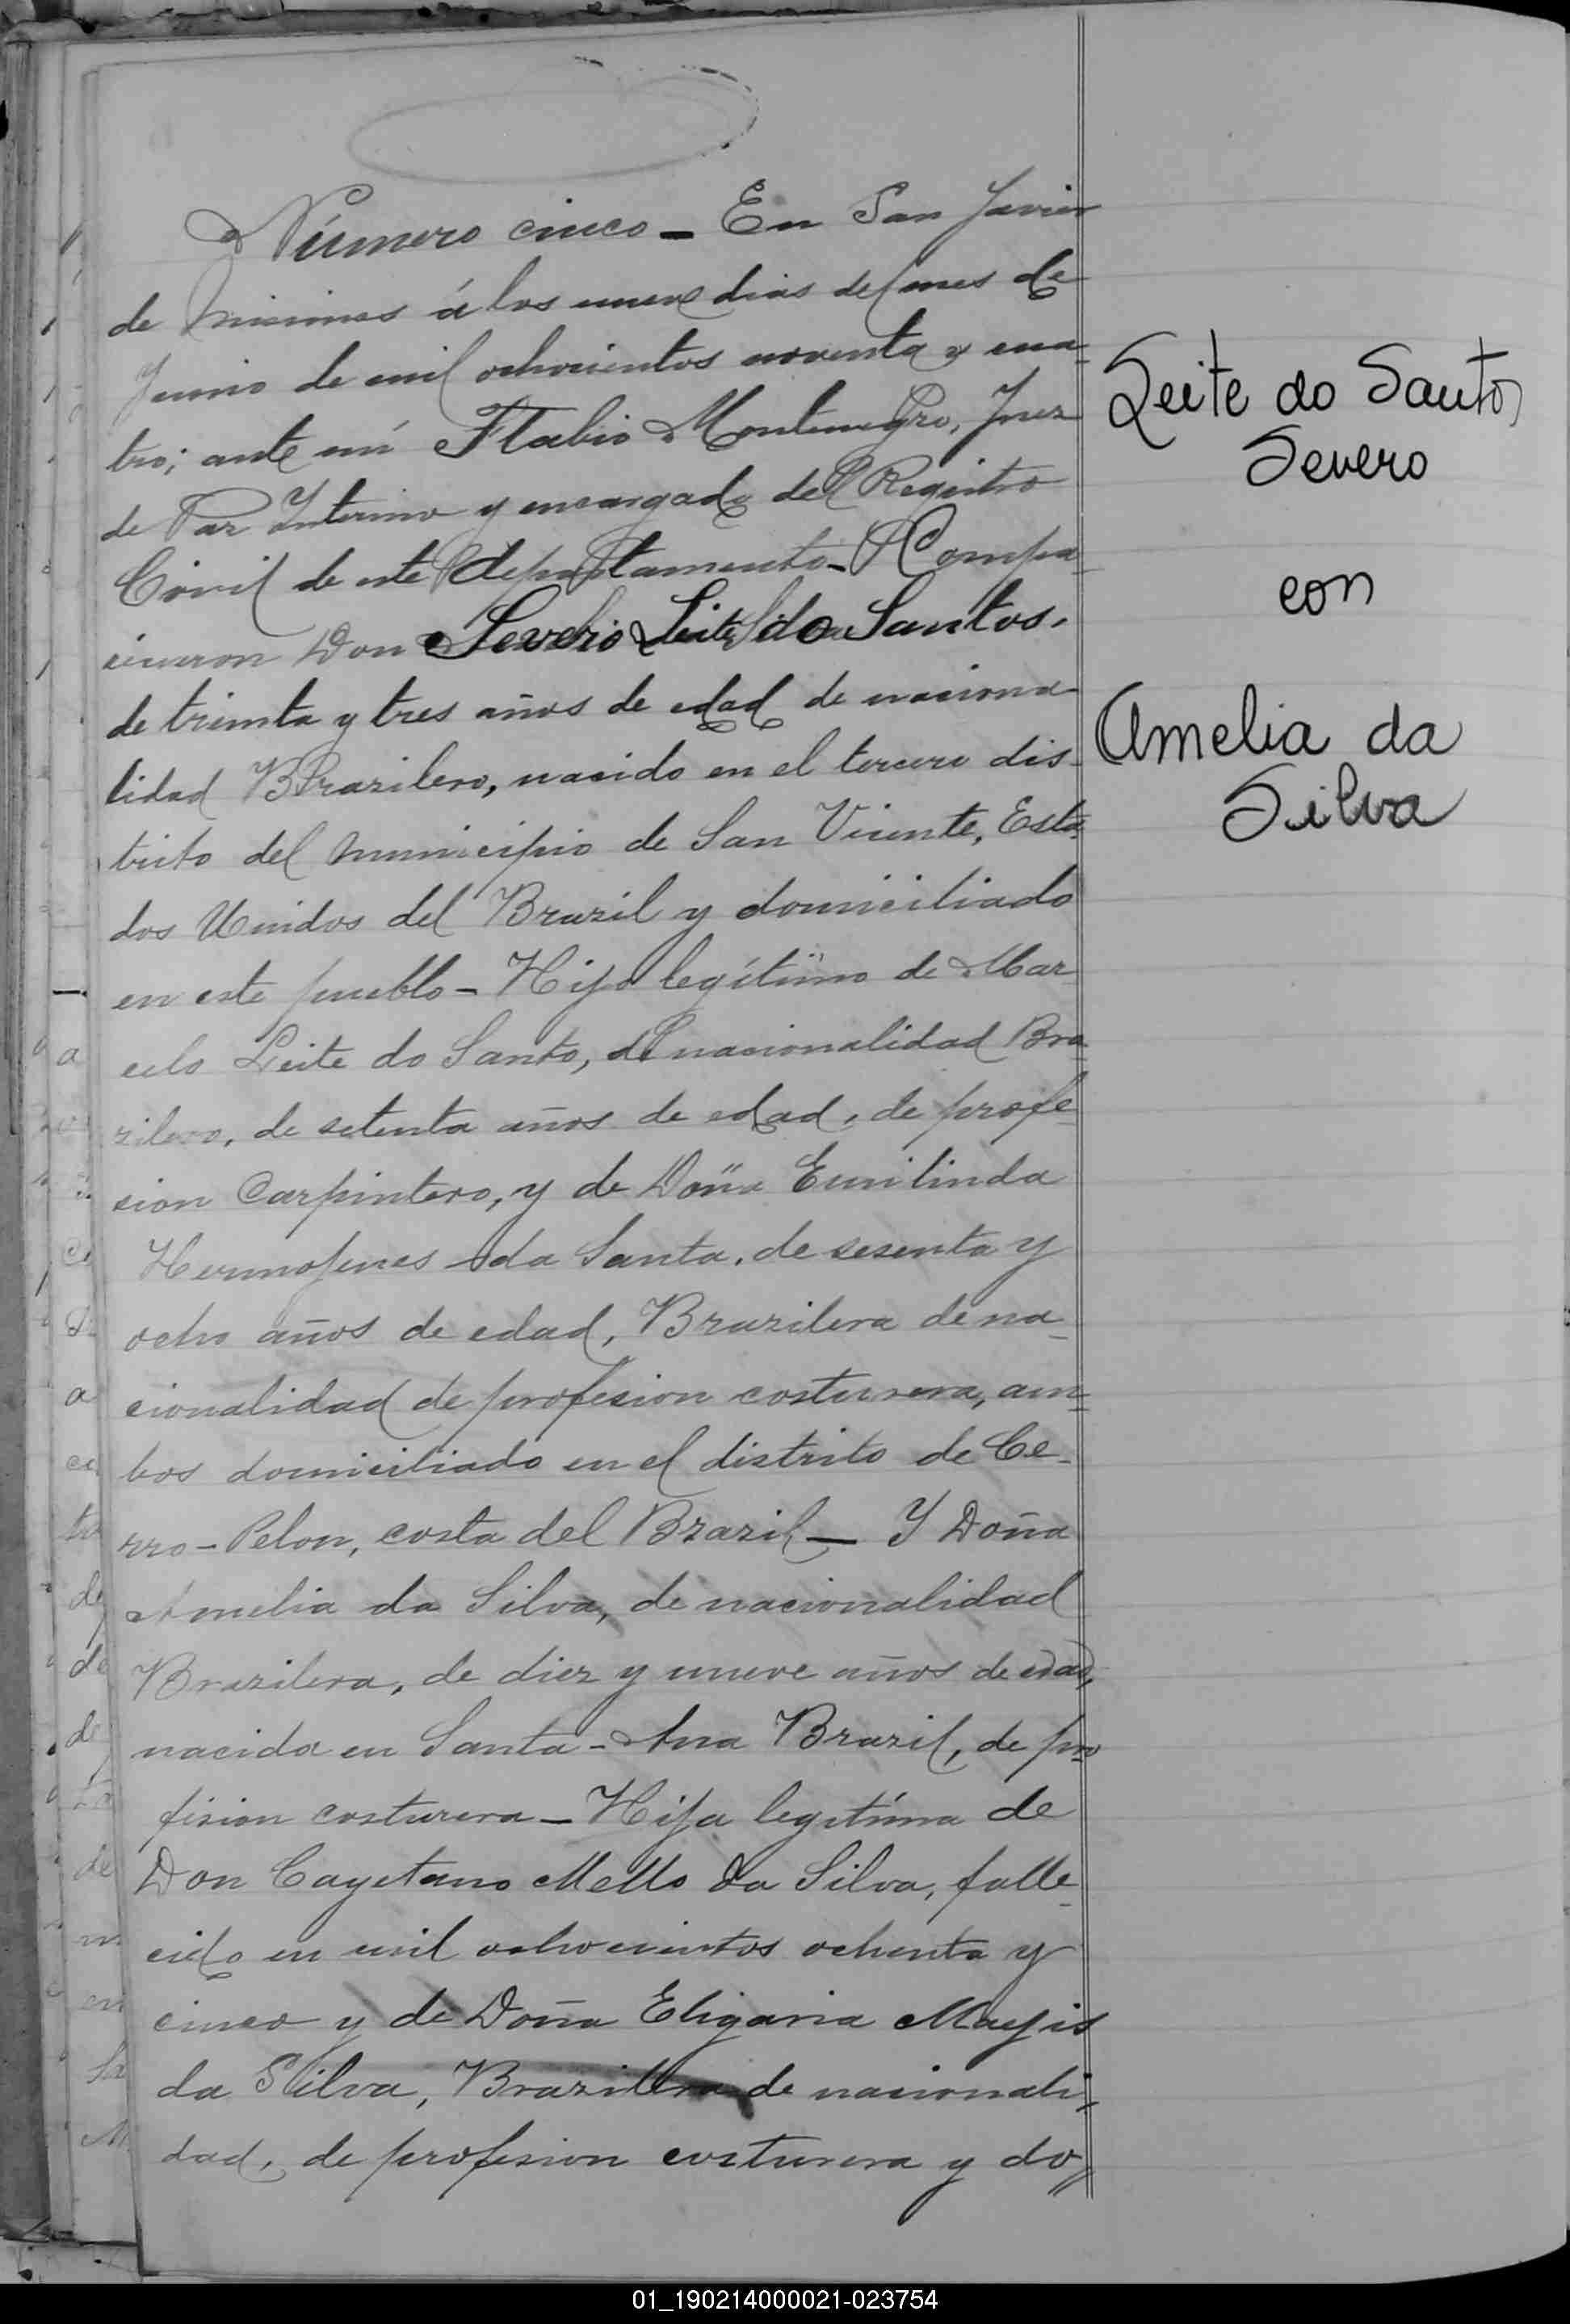 Número cinco - En San Javier
de Misiones á los nueve dias del mes de
Junio de mil ochocientos noventa y cua-
tro; ante mí Flabio Montenegro, Juez
de Paz Interino y encargado del Registro
Civil de este departamento - Compa-
cieron Don Severo Leite do Santos.
de treinta y tres años de edad de naciona-
lidad Brazilero, nacido en el tercero dis-
trito del Municipio de San Vicente, Esta-
dos Unidos del Brazil y domiciliado
en este pueblo - Hijo legítimo de Mar-
celo Leite do Santo, de nacionalidad Bra-
zilero, de setenta años de edad, de profe-
cion Carpintero, y de Doña
Hermojenes da Santa, de sesenta y
ocho años de edad, Brazilera de na-
cionalidad de profesion costurera, am-
bos domiciliado en el distrito de Ce-
rro-Pelon, costa del Brazil - Y Doña
Amelia da Silva, de nacionalidad
Brazilera, de diez y nueve años de edad,
nacida en Santa-Ana Brazil, de pro
fision costurera - Hija legítima de
Don Cayetano Mello da Silva, falle-
cido en mil ochocientos ochenta y
cinco y de Doña
da Silva, Brazilera de nacionali-
dad, de profesion costurera y do
Leite do Santo,
Severo
con
Amelia da
Silva
01_190214000021-023754